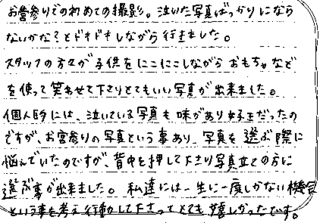 お宮参りでの初めての撮影。泣いた写真ばっかりになら
ないかな?とドキドキしながら行きました。
スタッフの方々が子供をにこにこしながらおもちゃなど
を使って笑わせて下さりとてもいい写真が出来ました。
個人的には、泣いている写真も味があり好きだったの
ですが、お宮参りの写真という事もあり、写真を選ぶ際に
悩んでいたのですが、背中を押して下さり写真立ての方に
選ぶ事が出来ました。私達には一生に一度しかない機会
という事を考え行動して下さってとても嬉しかったです。